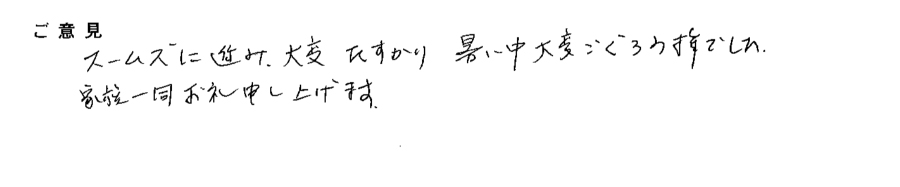 ご意見
スームズに進み、大変たすかり 暑い中大変ごくろう様でした.
家族一同お礼申し上げます.